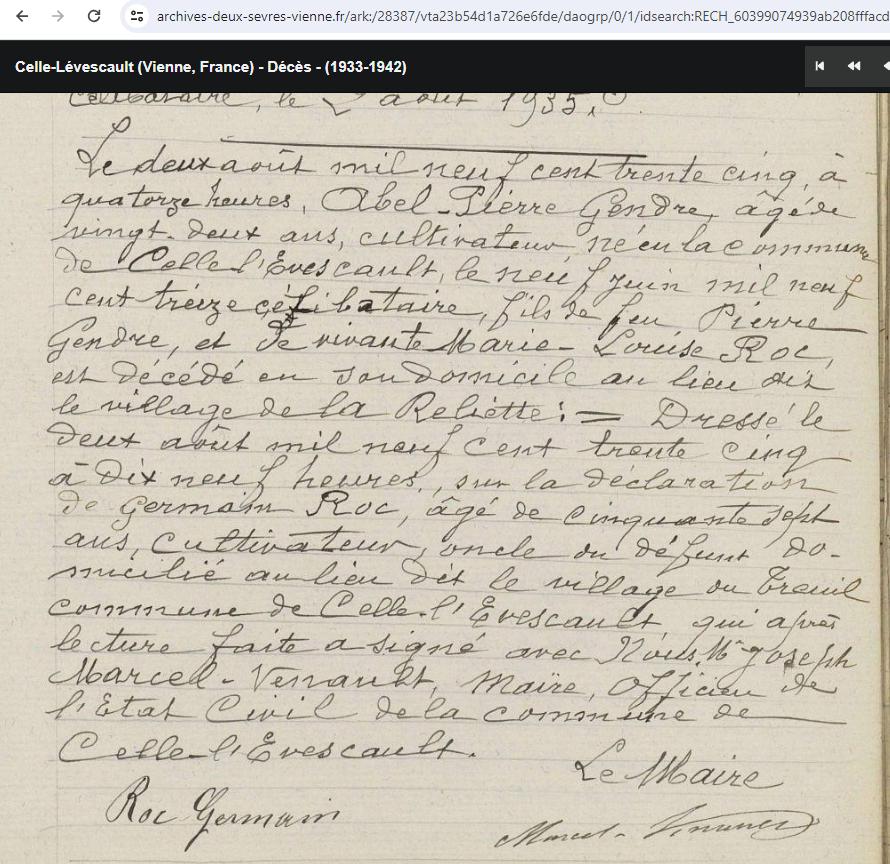 archives-deux-sevres-vienne.fr/ark:/28387/vta23b54d1a726e6fde/daogrp/0/1/idsearch:RECH_60399074939ab208fffacd
Celle-Lévescault (Vienne, France) - Décès - (1933-1942)
célibataire, le 2 août 1935.
Le deux août mil neuf cent trente cinq, à
quatorze heures, Abel-Pierre Gendre, âgé de
vingt-deux ans, cultivateur né en la commune
de Celle l'Evescault, le neuf juin mil neuf
cent treize célibataire, fils de feu Pierre
Gendre, et de vivante Marie-Louise Roc,
est décédé en son domicile au lieu dit
le village de la Reliette: = Dressé le
deux août mil neuf cent trente cinq
à dix neuf heures, sur la déclaration
de Germain Roc, âgé de cinquante sept
ans, cultivateur, oncle du défunt do-
micilié au lieu dit le village du Treuil
commune de Celle-l'Evescault, qui après
lecture faite a signé avec Nous, Mr Joseph
Marcel-Venault, Maire, Officier de
l'Etat Civil de la commune de
Celle-l'Evescault.
Le Maire
Roc Germain
Marcel-